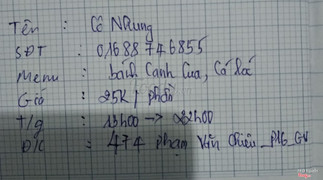 Tên : Cô Nhung
SĐT : 01688746855
Menu : bánh Canh Cua, Cá lóc
Giá : 25K / phần
T/g : 13h00 -> 22h00
Đ/c : 474 Phạm Văn Chiêu_P16_GV